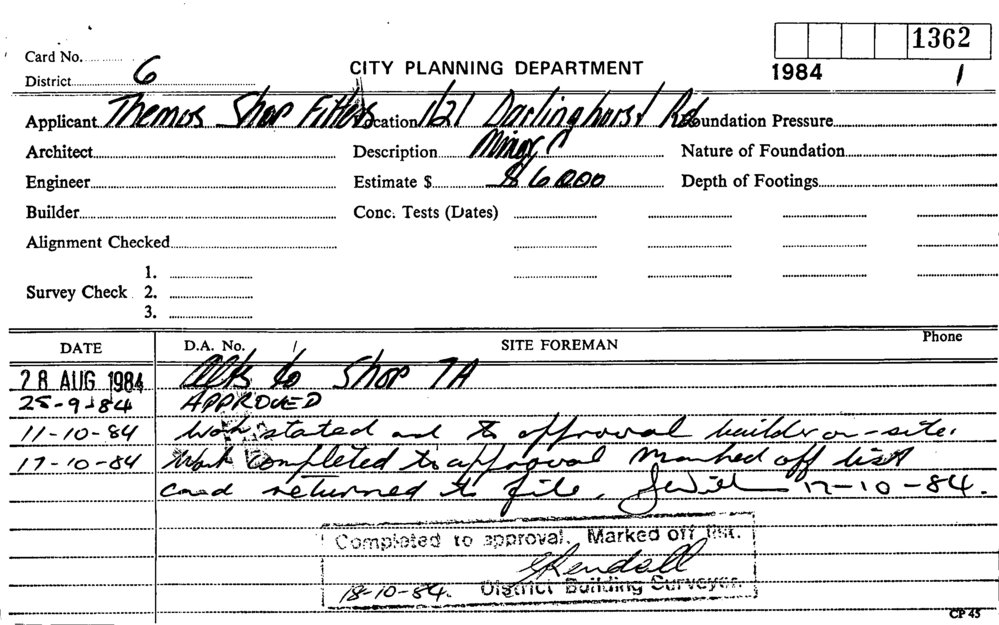 1362
Card No.
6
District
CITY PLANNING DEPARTMENT
1984 1
Applicant Themos Shop Fitters Location 1/21 Darlinghurst Rd Foundation Pressure
Architect Description Minor Nature of Foundation
Engineer Estimate $ $6000 Depth of Footings
Builder Conc. Tests (Dates)
Alignment Checked
1.
Survey Check 2.
3.
DATE D.A. No. / SITE FOREMAN Phone
28 AUG 1984 Alts to Shop 7A
25-9-84 APPROVED
11-10-84 Work stated and to approval builder on-site.
17-10-84 Work Completed to approval Marked off list
card returned to file. 17-10-84.
Completed to approval. Marked off list.
18-10-84. District Building Surveyor.
CP 45